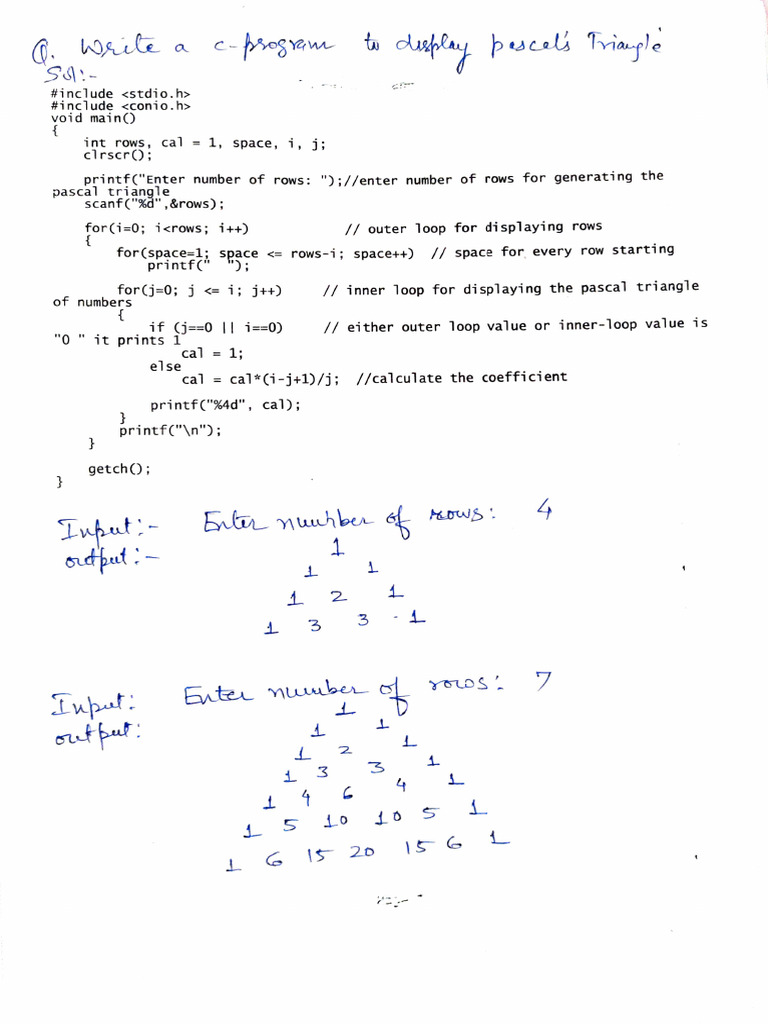 Q. Write a c-program to display pascal's Triangle
Sol:-
#include <stdio.h>
#include <conio.h>
void main()
{
int rows, cal = 1, space, i, j;
clrscr();
printf("Enter number of rows: ");//enter number of rows for generating the
pascal triangle
scanf("%d",&rows);
for(i=0; i<rows; i++) // outer loop for displaying rows
{
for(space=1; space <= rows-i; space++) // space for every row starting
printf("  ");
for(j=0; j <= i; j++) // inner loop for displaying the pascal triangle
of numbers
{
if (j==0 || i==0) // either outer loop value or inner-loop value is
"0 " it prints 1
cal = 1;
else
cal = cal*(i-j+1)/j; //calculate the coefficient
printf("%4d", cal);
}
printf("\n");
}
getch();
}
Input:- Enter number of rows: 4
output:-
1
1 1
1 2 1
1 3 3 1
Input: Enter number of rows: 7
output:
1
1 1
1 2 1
1 3 3 1
1 4 6 4 1
1 5 10 10 5 1
1 6 15 20 15 6 1